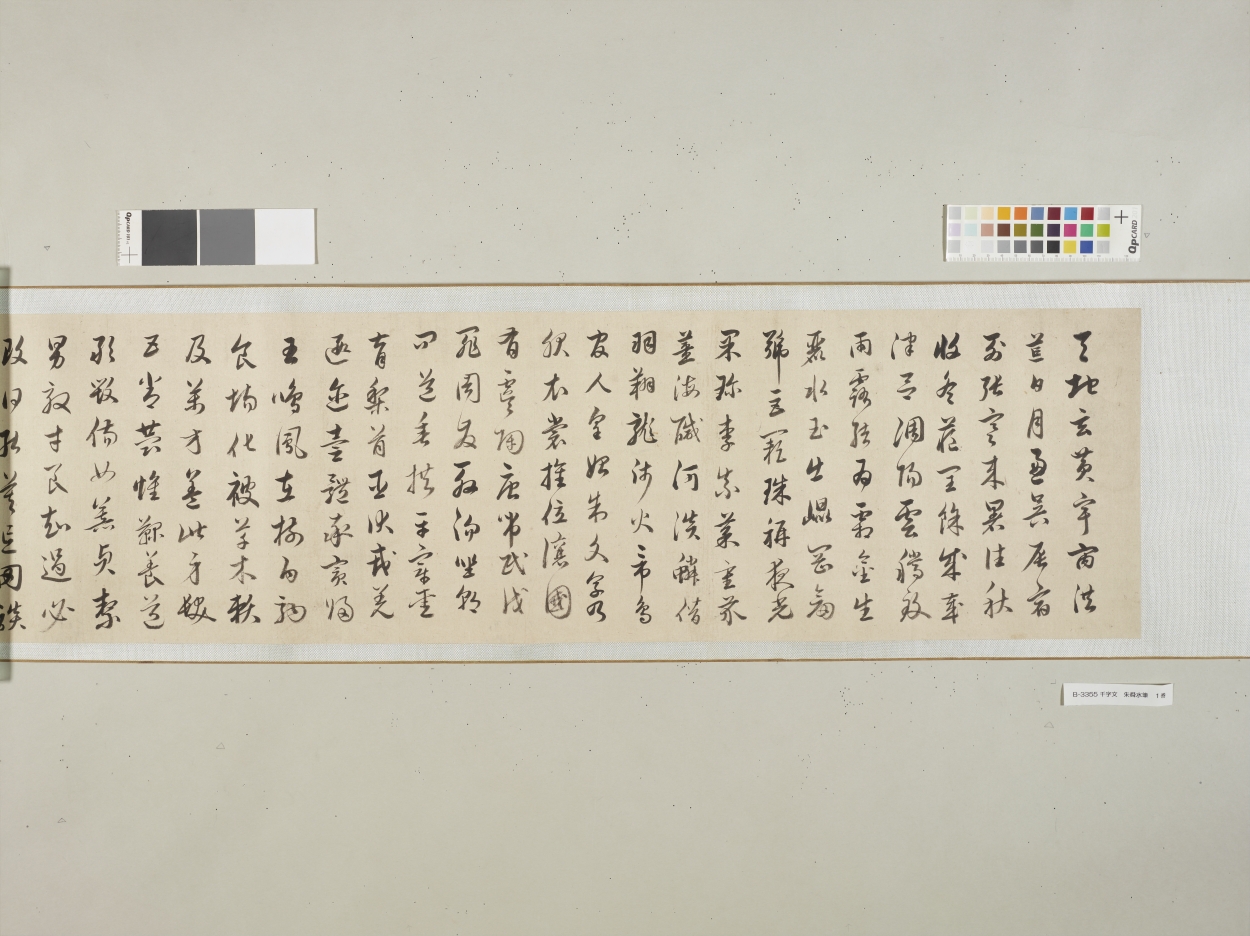 天地玄黄宇宙洪
荒日月盈昃辰宿
列張寒来暑往秋
收冬藏閏餘成歲
律呂調陽雲騰致
雨露結為霜金生
麗水玉出崐岡劍
號巨闕珠稱夜光
果珍李柰菜重芥
薑海鹹河淡鱗潛
羽翔龍師火帝鳥
官人皇始制文字乃
服衣裳推位讓國
有虞陶唐弔民伐
罪周發殷湯坐朝
問道垂拱平章愛
育黎首臣伏戎羌
遐邇壹體率賓歸
王鳴鳳在樹白駒
食場化被草木賴
及萬方蓋此身髮
五常恭惟鞠養豈
敢毀傷女慕貞絜
男效才良知過必
改得能莫忘罔談
QpCARD 101
QpCARD
B-3355 千字文 朱舜水筆 1巻